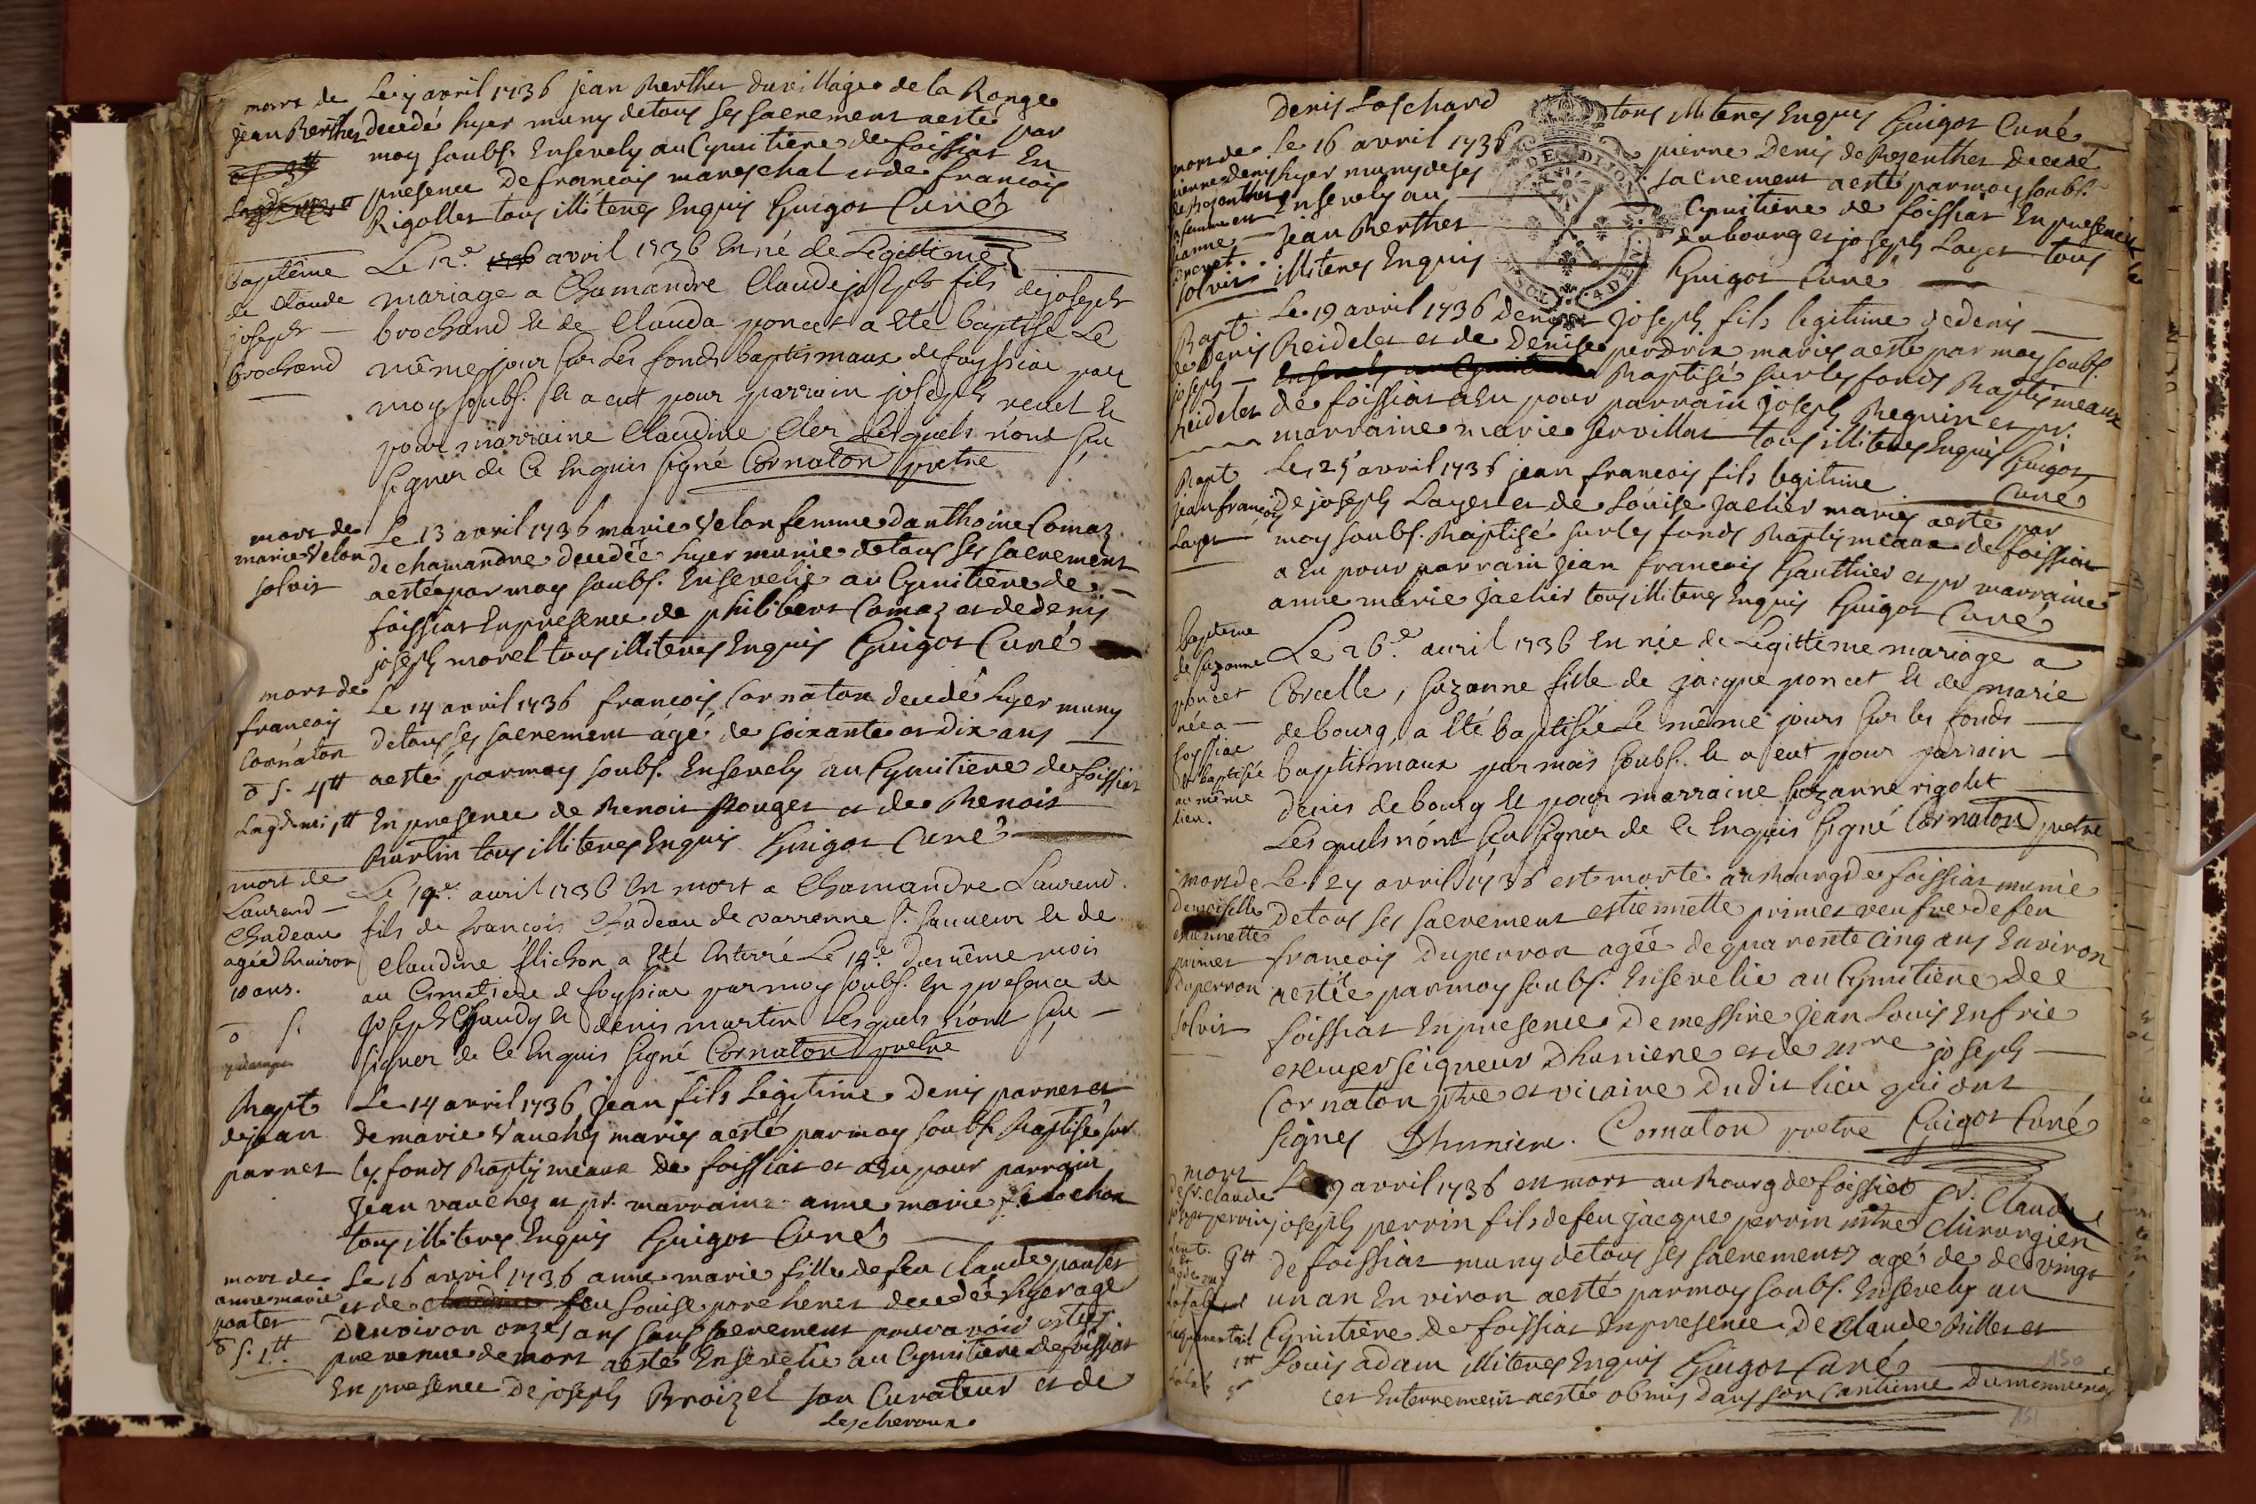 mort de
jean Berthet
Le 9 avril 1736 jean Berthet du village de la Ronge
decedé hyer muny de tous ses sacrement a esté par
moy soubs. Ensevely au Cymitiere de foissiat En
presence de francois mareschal et de francois
Rigollet tous illiteres Enquis Guigot Curé
baptême
de claude
joseph
brochand
Le 12e avril 1736 est né de Legittime
mariage a Chamandre Claude joseph fils de joseph
brochand et de Clauda poncet a eté baptisé Le
même jour sur Les fonds baptismaux de foyssia par
moy soubs. et a eut pour parrain joseph revel et
pour marraine Claudine Cler Lesquels n'ont sçu
signer de Ce Enquis signé Cornaton pretre
mort de
marie Velon
solvit
Le 13 avril 1736 marie Velon femme d'anthoine Comaz
de chamandre decedée hyer munie de tous ses sacrement
a esté par moy soubs. Ensevelie au Cymitiere de
foissiat En presence de philibert Comaz et de denis
joseph morel tous illiteres Enquis Guigot Curé
mort de
francois
Cornaton
d s. 4tt
Le 14 avril 1736 francois Cornaton decedé hyer muny
de tous ses sacrement agé de soixante et dix ans
a esté par moy soubs. Ensevely au Cymitiere de foissiat
En presence de Benoit Rouget et de Benoit
Burtin tous illiteres Enquis Guigot Curé
mort de
Laurend
Chadeau
agé d'Environ
10 ans.
d s.
Le 14e avril 1736 est mort a Chamandre Laurend
fils de francois Chadeau de varenne st. sauveur et de
Claudine flichon a eté Enterré Le 14e du même mois
au Cimetiere de foyssia par moy soubs. En presence de
joseph Chaudy et denis martin Lesquels n'ont sçu
signer de Ce Enquis signé Cornaton pretre
Bapt
de jean
parnet
Le 14 avril 1736 jean fils Legitime Denis parnet et
de marie Vauchez mariés a esté par moy soubs. Baptisé sur
les fonds Baptismeaux de foissiat et a Eu pour parrain
Jean vauchez et pr. marraine anne marie
tous illiteres Enquis Guigot Curé
mort de
anne marie
pontet
d s. 1tt.
Le 16 avril 1736 anne marie fille de feu Claude pontet
et de feu Louise porcheret decedée hyer age
d'environ onze ans sans sacrement pour avoir estés
prevenue de mort a esté Ensevelie au Cymitiere de foissiat
En presence de joseph Broizel son Curateur et de
Lescheroux
Denis Loschard tous illiteres Enquis Guigot Curé
mort de
pierre denis
de Rosenthet
solvit
Le 16 avril 1736 pierre Denis de Rosenthet decedé
hyer muny de ses sacrement a esté par moy soubs.
Ensevely au Cymitiere de foissiat En presence de
Jean Berthet du bourg et joseph Layet tous
illiteres Enquis Guigot Curé
Bapt
de Denis
joseph
Reidelet
Le 19 avril 1736 Denis Joseph fils legitime de denis
Reidelet et de Denise perdrix mariés a esté par moy soubs.
Baptisé sur les fonds Baptismeaux
de foissiat a Eu pour parrain Joseph Requin et pr.
marraine marie servillat tous illiteres Enquis Guigot
Curé
Bapt
jean francois
Layet
Le 25 avril 1736 jean francois fils legitime
de joseph Layet et de Louise Jaclier mariés a esté par
moy soubs. Baptisé sur les fonds Baptismeaux de foissiat
a Eu pour parrain jean francois Gauthier et pr marraine
anne marie Jaclier tous illiteres Enquis Guigot Curé
baptême
de suzanne
poncet
née a
foyssiac
et baptisée
au même
lieu.
Le 26e avril 1736 est née de Legittime mariage a
Corcelle, suzanne fille de jacque poncet et de marie
debourg, a eté baptisée Le même jours sur les fonds
baptismaux par moi soubs. et a eut pour parrain
denis debourg et pour marraine suzanne rigolet
Lesquels n'ont sçu signer de Ce Enquis signé Cornaton pretre
mort de
Demoiselle
estiennette
primet
duperron
solvit
Le 27 avril 1736 est morte au Bourg de foissiat munie
de tous ses sacrement estiennette primet veufve de feu
francois Duperron agée de quarente cinq ans Environ
a estée par moy soubs. Ensevelie au Cymitiere de
foissiat En presence De messire Jean Louis Enfrie
escuyer seigneur Dhuniere et de mre joseph
Cornaton ptre et vicaire Dudit lieu qui ont
signes Dhuniere. Cornaton pretre Guigot Curé
mort
de sr. claude
joseph perrin
Le 29 avril 1736 est mort au Bourg de foissiat sr. Claude
joseph perrin fils de feu jacque perrin mtre Chirurgien
de foissiat muny de tous ses sacrements agé de de vingt
un an Environ a esté par moy soubs. Ensevely au
Cymitiere de foissiat En presence De Claude Billet et
Louis adam illiteres Enquis Guigot Curé
cet Enterrement a esté obmis dans son